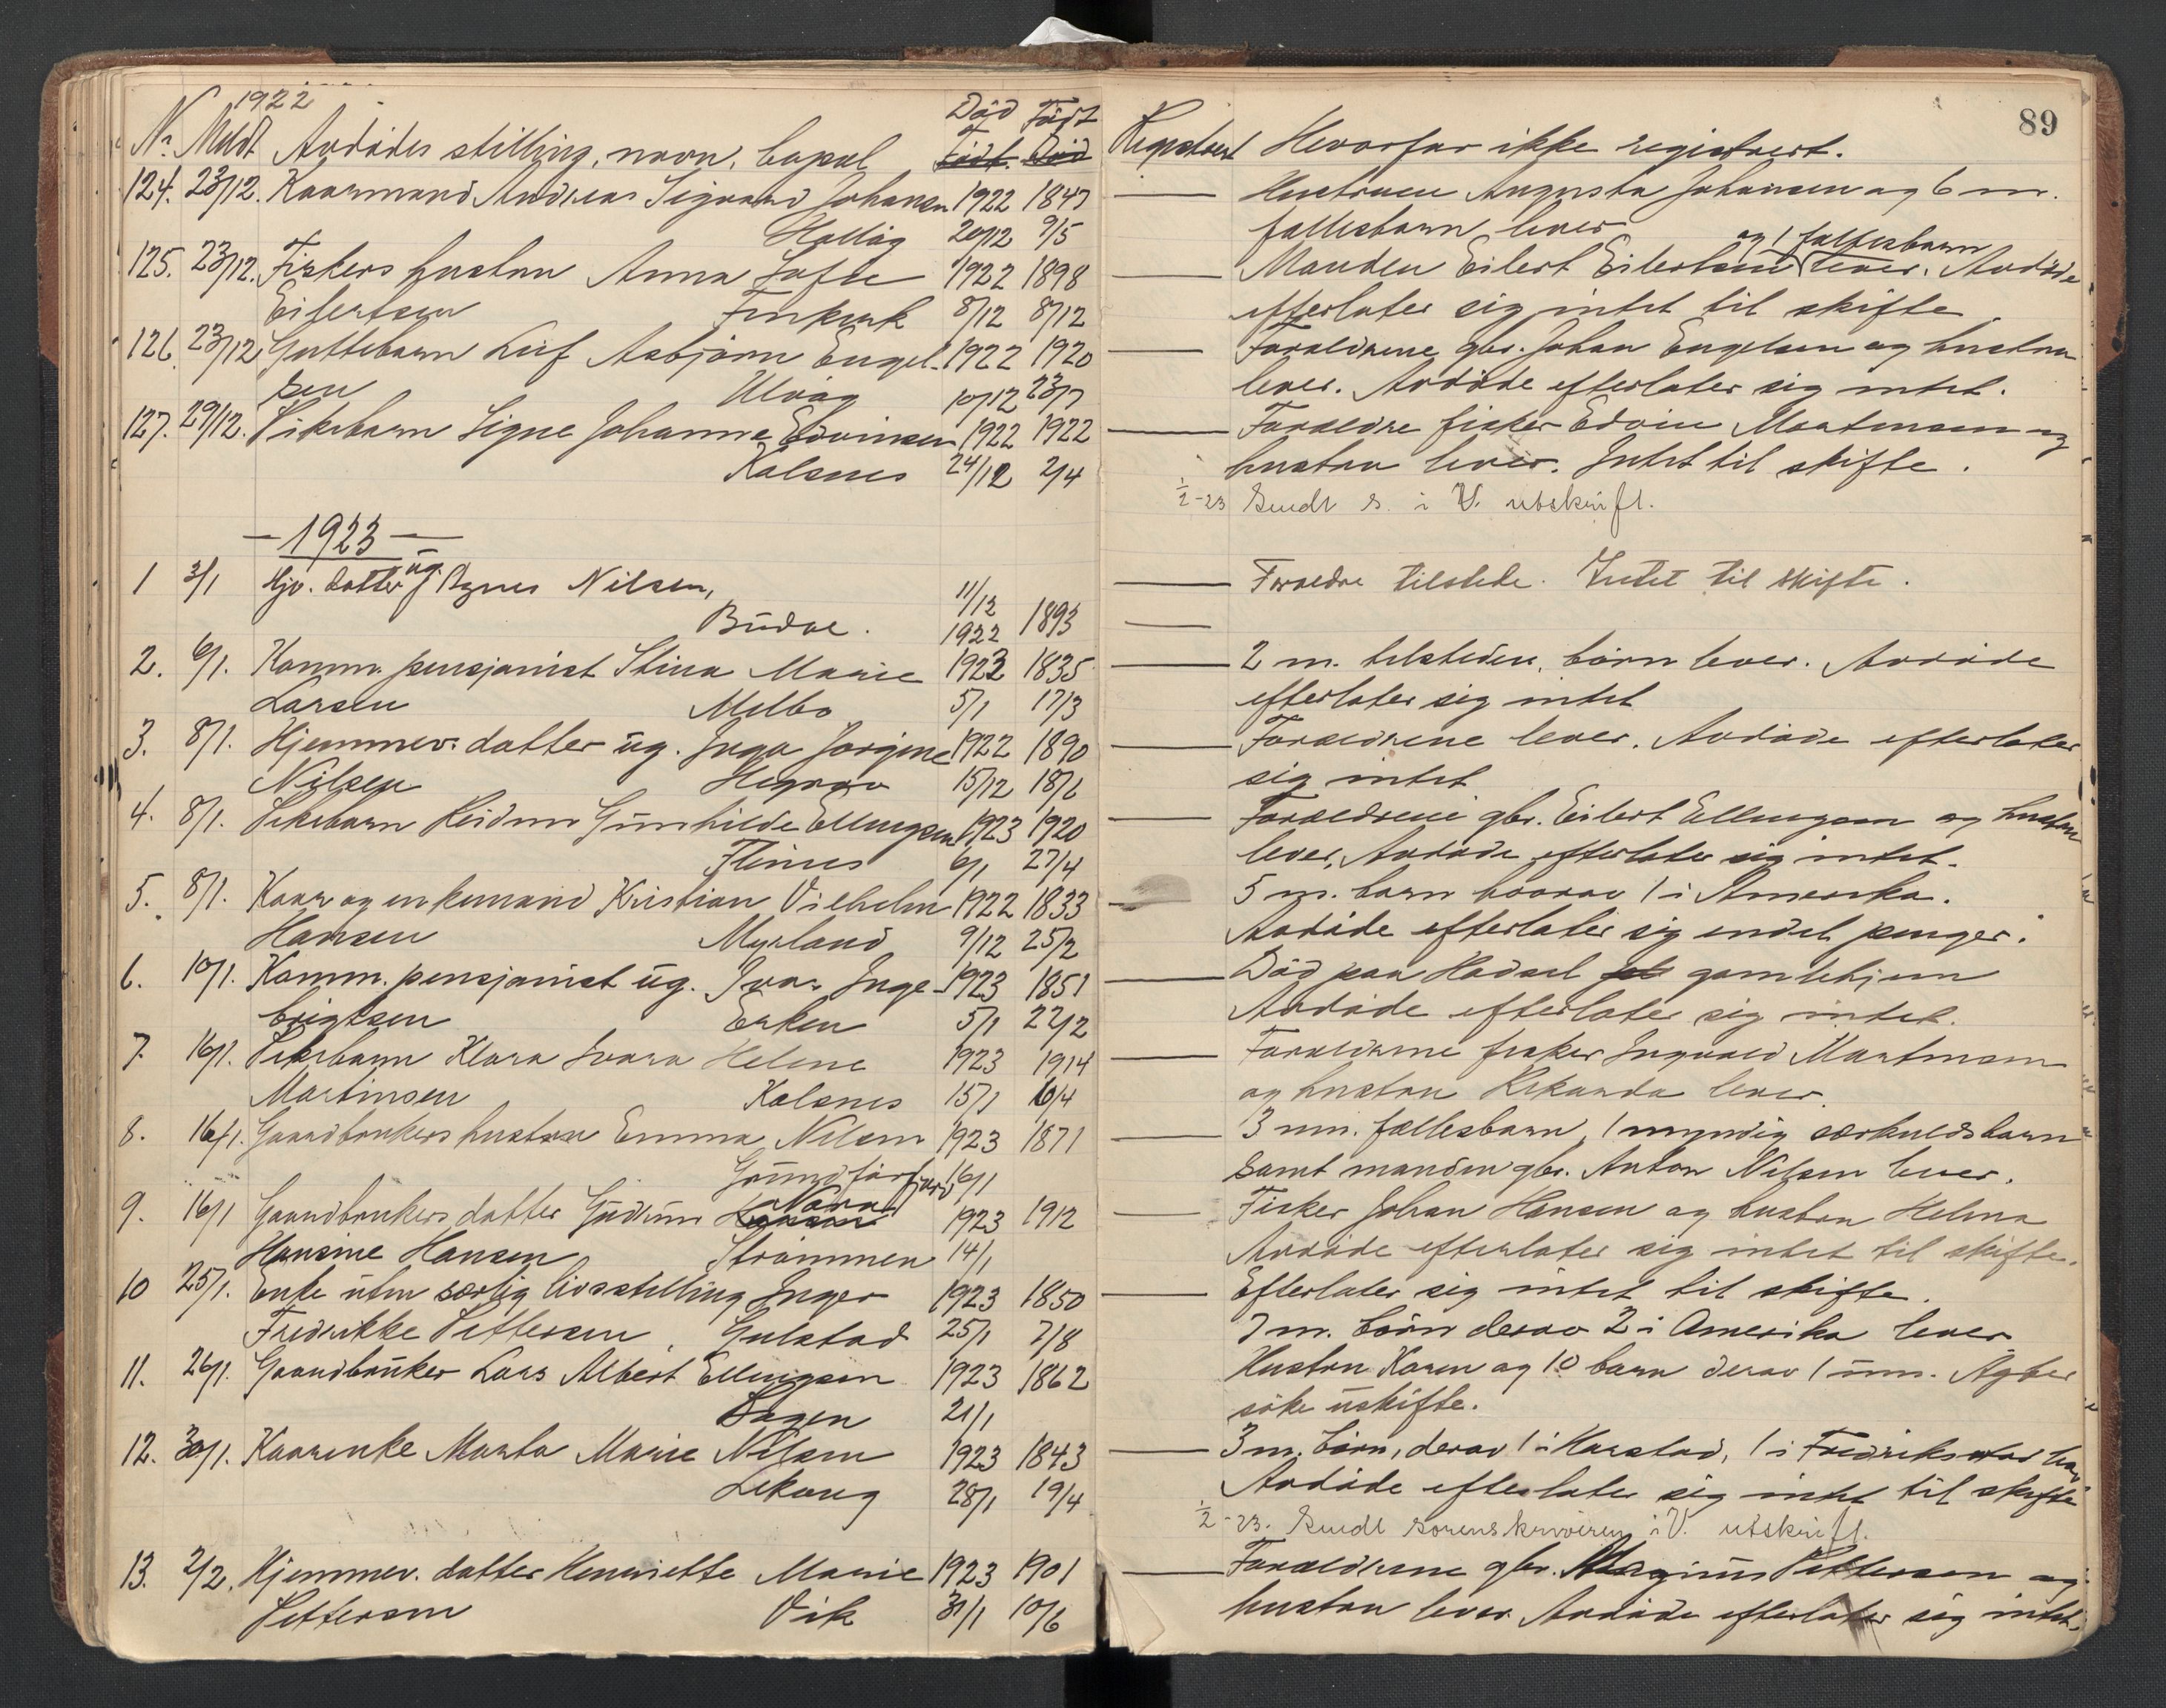 1922
89
Nr. Meldt Avdødes stilling, navn, bopæl Død Født Registrert Hvorfor ikke registrert.
Født. Død
124. 23/12. Kaarmand Andreas Sigvard Johansen 1922 1847 — Hustruen Augusta Johansen og 6 m.
Hollåg 20/12 9/5 fællesbarn lever
og 1 fællesbarn
125. 23/12. Fiskers hustru Anna Sofie 1922 1898 — Manden Eilert Eilertsen lever. Avdøde
Eilertsen 8/12 8/12 efterlater sig intet til skifte
126. 23/12 Guttebarn Leif Asbjørn Engel- 1922 1920 — Forældrene gbr. Johan Engelsen og hustru
sen Ulvåg 10/12 23/7 lever. Avdøde efterlater sig intet.
127. 29/12. Pikebarn Signe Johanne Edvinsen 1922 1922 — Forældre fisker Edvin Martinsen og
Kalsnes 24/12 2/4 hustru lever. Intet til skifte.
1/2-23 Sendt s. i V. utskrift.
— 1923 —
1 3/1 Hjv. datter ug. J Agnes Nilsen, 11/12 — Forældre tilstede. Intet til skifte.
Budal. 1922 1893 —
2. 6/1. Komm. pensjonist Stina Marie 1923 1835 — 2 m. tilstedev. børn lever. Avdøde
Larsen Melbo 5/1 17/3 efterlater sig intet
3. 8/1. Hjemmev. datter ug. Inga Jorgine 1922 1890 — Forældrene lever. Avdøde efterlater
Nilsen 15/12 18/6 sig intet
4. 8/1. Pikebarn Reidun Gunhilde Ellingsen 1923 1920 — Forældrene gbr. Eilert Ellingsen og hustru
Flines 6/1 27/4 lever. Avdøde efterlater sig intet.
5. 8/1. Kaar og enkemand Kristian Vilhelm 1922 1833 — 5 m. barn hvorav 1 i Amerika.
Hansen Myrland 9/12 25/2 Avdøde efterlater sig endel penger.
6. 10/1. Komm. pensjonist ug. Ivar Inge- 1923 1851 — Død paa Hadsel gamlehjem
brigtsen 5/1 22/2 Avdøde efterlater sig intet.
7. 16/1. Pikebarn Klara Svara Helene 1923 1914 — Forældrene fisker Ingvald Martinsen
Martinsen Kalsnes 15/1 16/4 og hustru Rikarda lever.
8. 16/1. Gaardbrukers hustru Emma Nilsen 1923 1871 — 3 um. fællesbarn, 1 myndig særkuldsbarn
Grundførfjord 16/1 samt manden gbr. Anton Nilsen lever.
Nora
9. 16/1 Gaardbrukers datter Gudrun 1923 1912 — Fisker Johan Hansen og hustru Helma
Hansine Hansen Strømmen 14/1 Avdøde efterlater sig intet til skifte.
10 25/1. Enke uten særlig livsstilling Inger 1923 1850 — Efterlater sig intet til skifte.
Fredrikke Pettersen Gulstad 25/1 7/8 7 m. børn derav 2 i Amerika lever
11. 26/1. Gaardbruker Lars Albert Ellingsen 1923 1862 Hustru Karen og 10 barn derav 1 um. Agter
21/1 søke uskifte.
12. 30/1. Kaarenke Marta Marie Nilsen 1923 1843 — 3 m. børn, derav 1 i Harstad, 1 i Fredrikstad lever
Lekang 28/1 19/4 Avdøde efterlater sig intet til skifte
1/2-23. Sendt sorenskriveren i V. utskrift.
13. 2/2. Hjemmev. datter Henriette Marie 1923 1901 — Forældrene gbr. Pettersen og
Pettersen Vik 31/1 10/6 hustru lever. Avdøde efterlater sig intet.